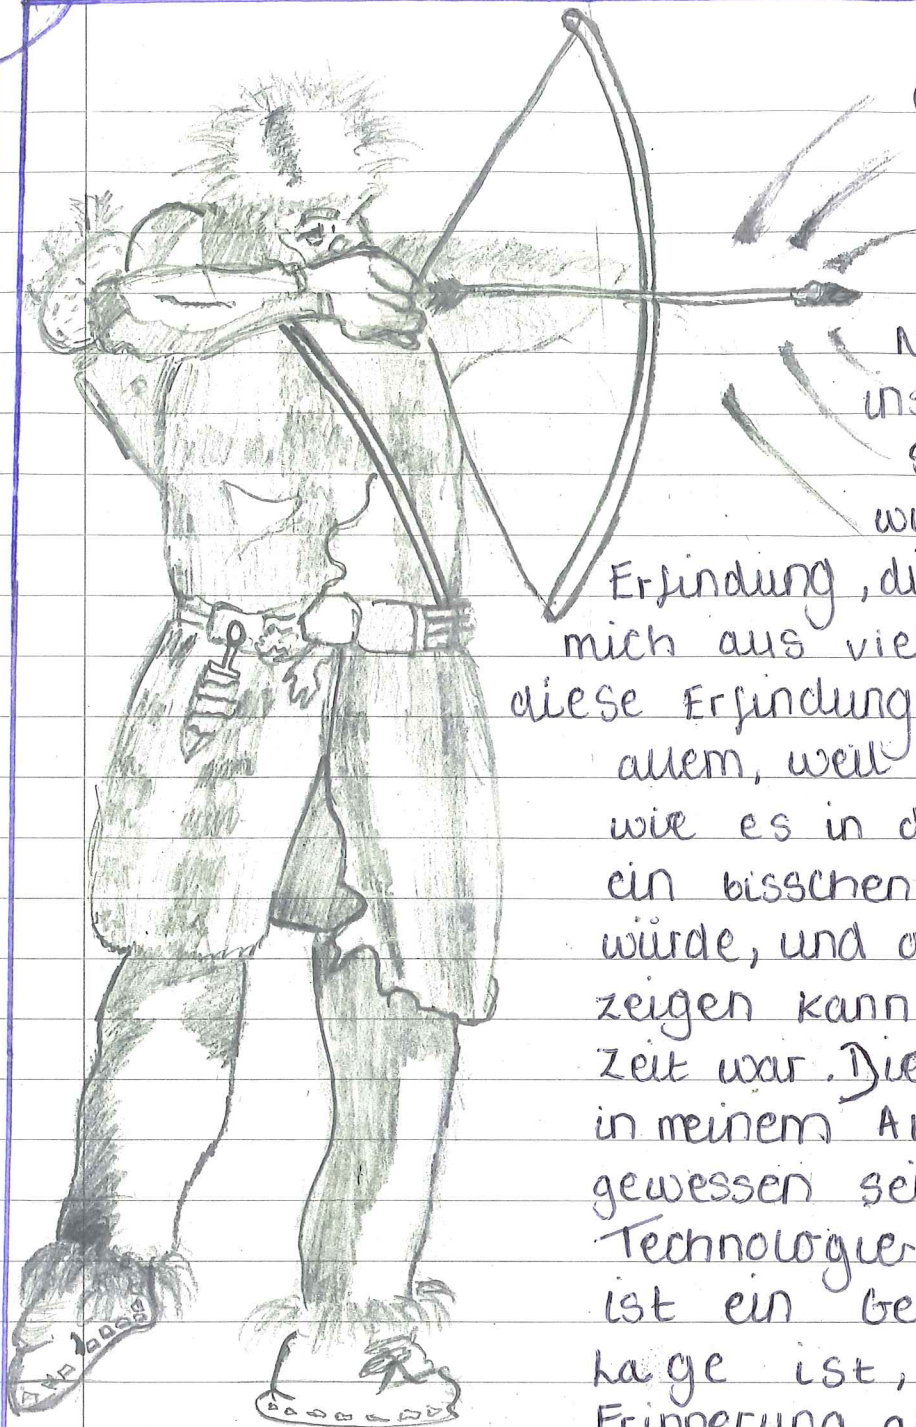 ins
Erfindung, di
mich aus vie
diese Erfindung
allem, weil
wie es in d
ein bisschen
würde, und d
zeigen kann
Zeit war. Die
in meinem A
gewessen sei
Technologie
ist ein Ge
Lage ist,
Erinnerung